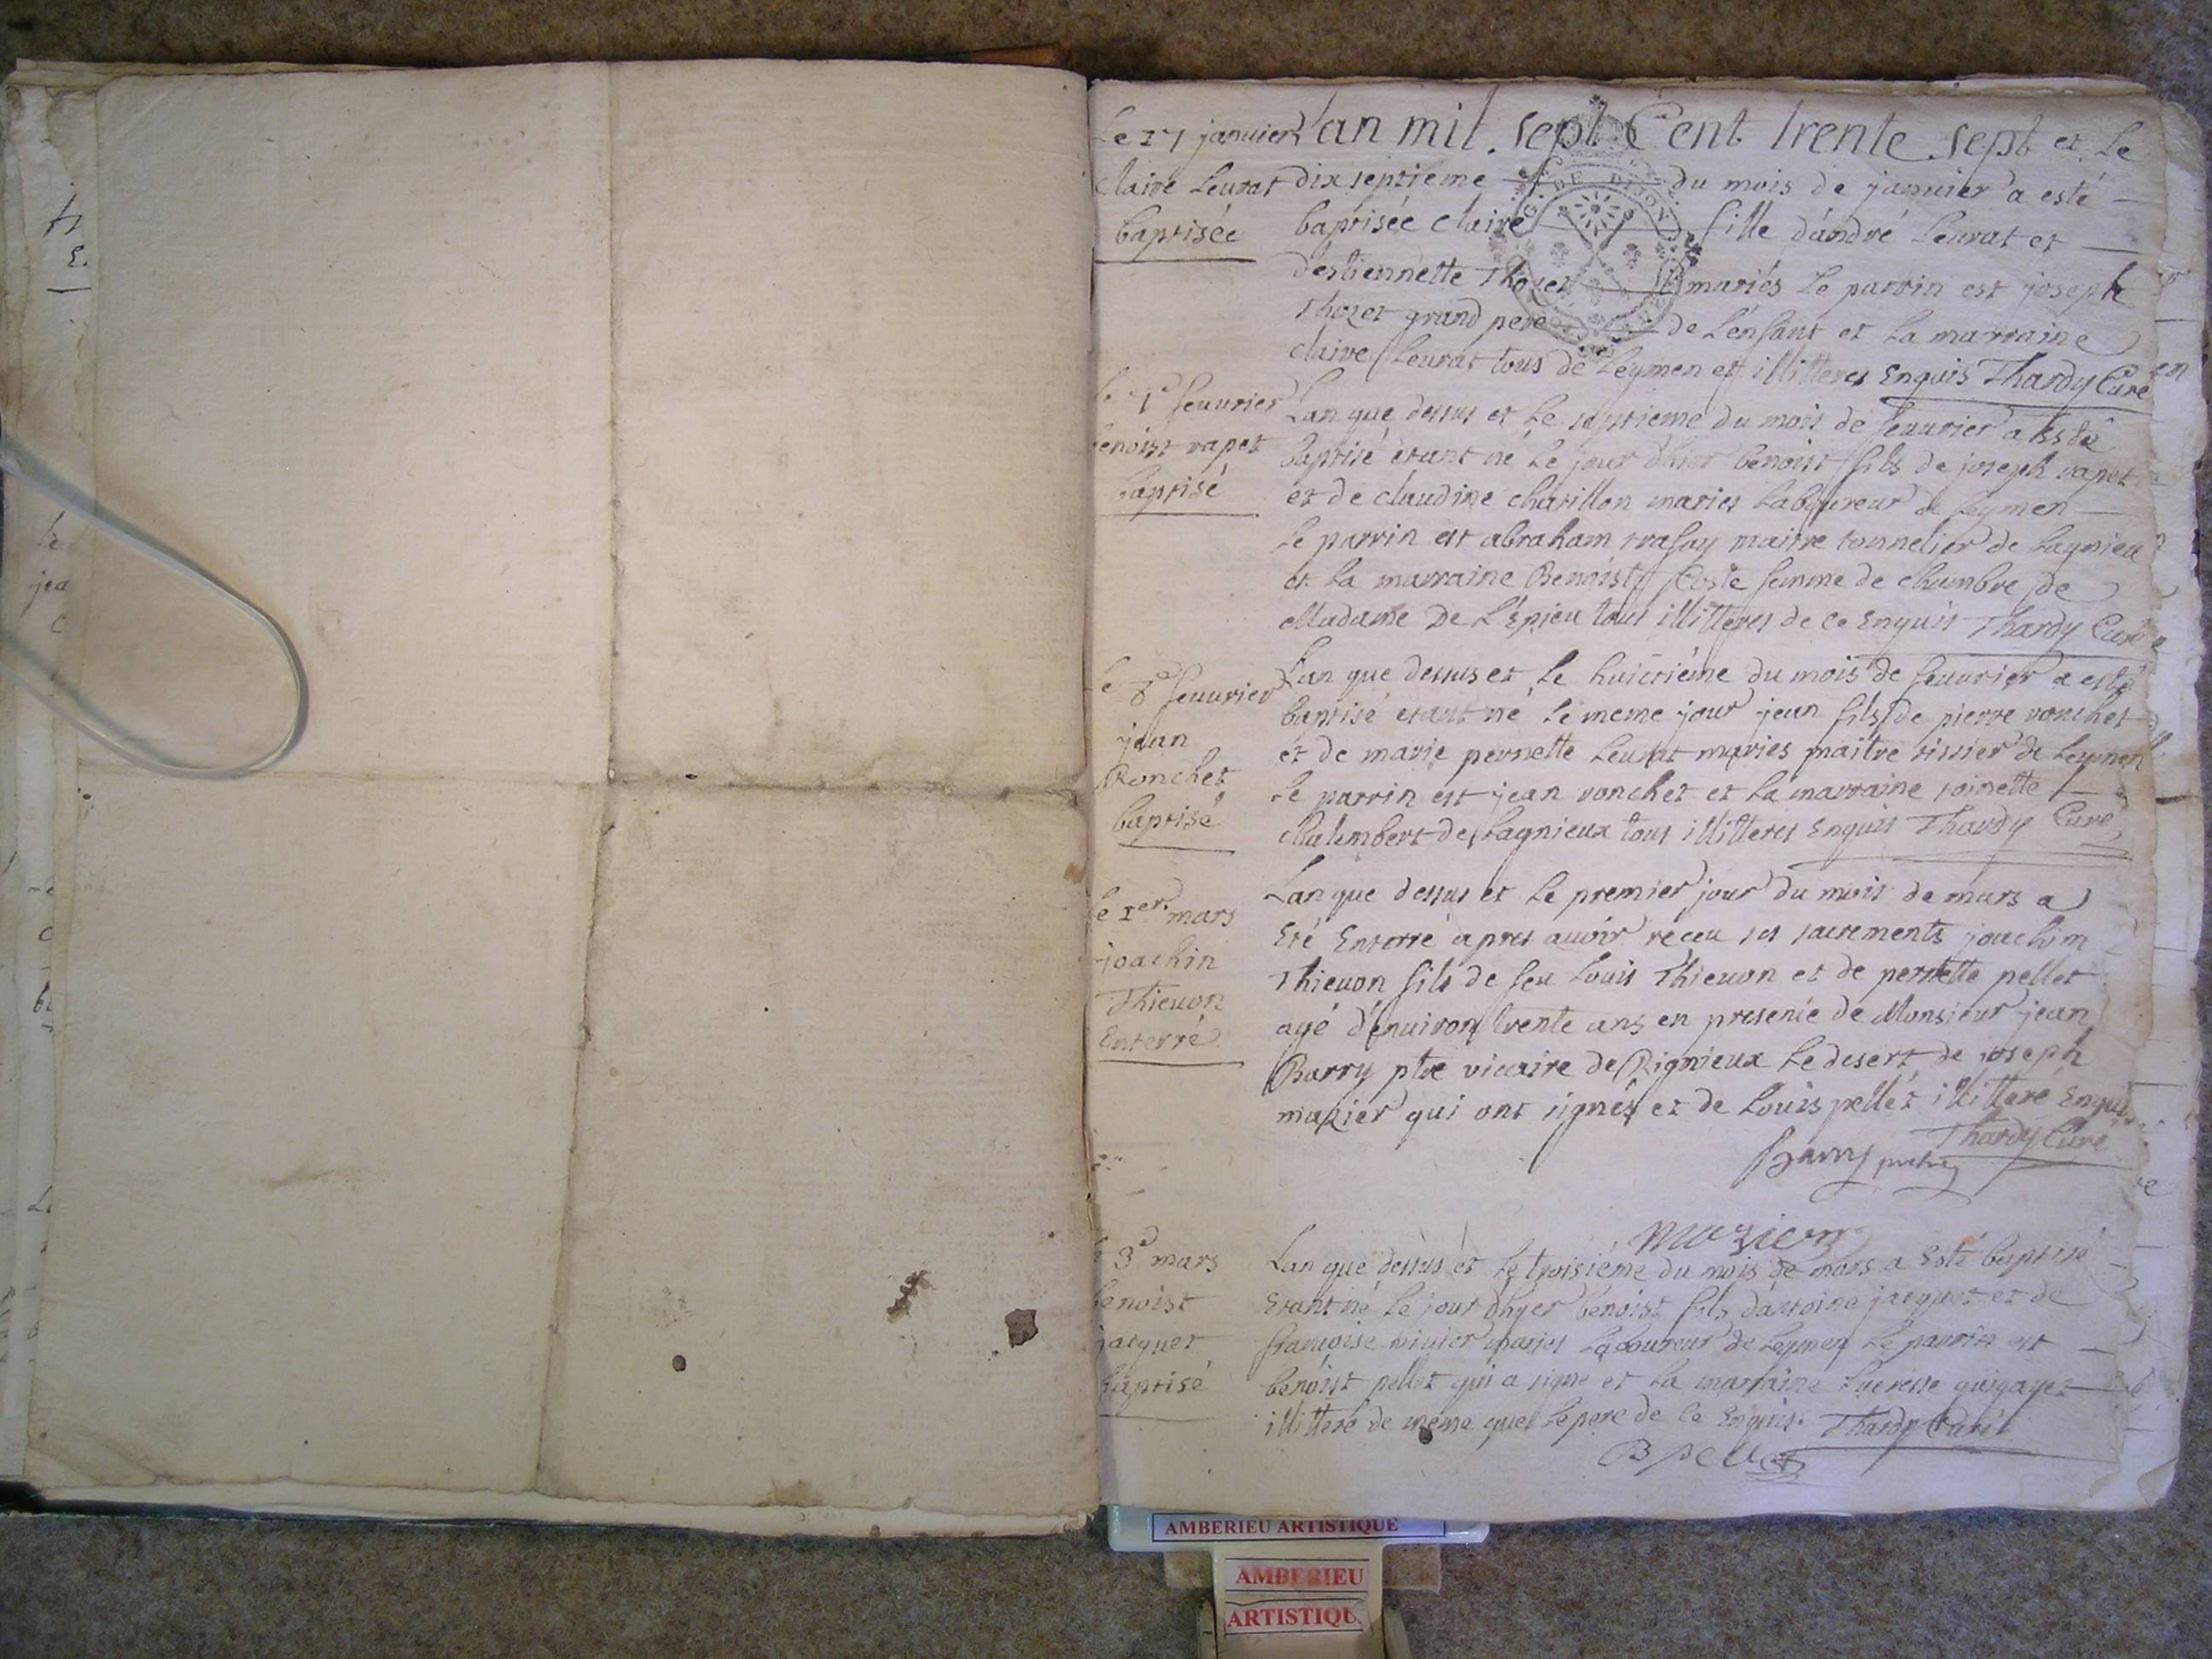 Le 17 janvier
Claire Leurat
baptisée
L'an mil sept Cent trente sept et Le
dix septieme du mois de janvier a esté
baptisée Claire fille d'andré Leurat et
destiennette Thozet mariés Le parrin est joseph
Thozet grand pere de L'enfant et La marraine
claire Leurat tous de Leymen et illitteres Enquis Thardy Curé
feuurier
benoist vapet
baptisé
Lan que dessus et Le septieme du mois de feuurier a Esté
baptisé etant né Le jour d'hier benoist fils de joseph vapet
et de claudine chatillon maries Laboureur de Leymen
Le parrin est abraham trafay maitre tonnelier de Lagnieu
et La marraine Benoiste Coste femme de chambre de
Madame De L'Epieu tous illitteres de ce Enquis Thardy Curé
Le 8e feuurier
jean
Ronchet
baptisé
Lan que dessus et Le huictiéme du mois de feuurier a esté
baptisé etant né Le meme jour jean fils de pierre ronchet
et de marie pernette Leurat maries maitre tissier de Leymen
Le parrin est jean ronchet et La marraine toinette
chalembert de Lagnieux tous illitteres Enquis Thardy Curé
Le 1er mars
joachin
Thieuon
Enterré
Lan que dessus et Le premier jour du mois de mars a
Eté Enterré apres auoir receu ses sacrements joachim
Thieuon fils de feu Louis Thieuon et de pernette pellet
agé d'enuiron trente ans en presence de Monsieur jean
Barry ptre vicaire de Rignieux Le desert de joseph
mazier qui ont signés et de Louis pellet illittere Enquis
Thardy Curé
Barry
mazier
Le 3e mars
benoist
jacquet
baptisé
Lan que dessus et Le troisiéme du mois de mars a Esté baptisé
Etant né Le jour d'hyer benoist fils d'antoine jacquet et de
francoise maries Laboureur de Leymen Le parrin est
benoist pellet qui a signé et La marraine
illitteré de même que Le pere de ce Enquis. Thardy Curé
B pellet
DE DIJON
AMBERIEU ARTISTIQUE
AMBERIEU
ARTISTIQU